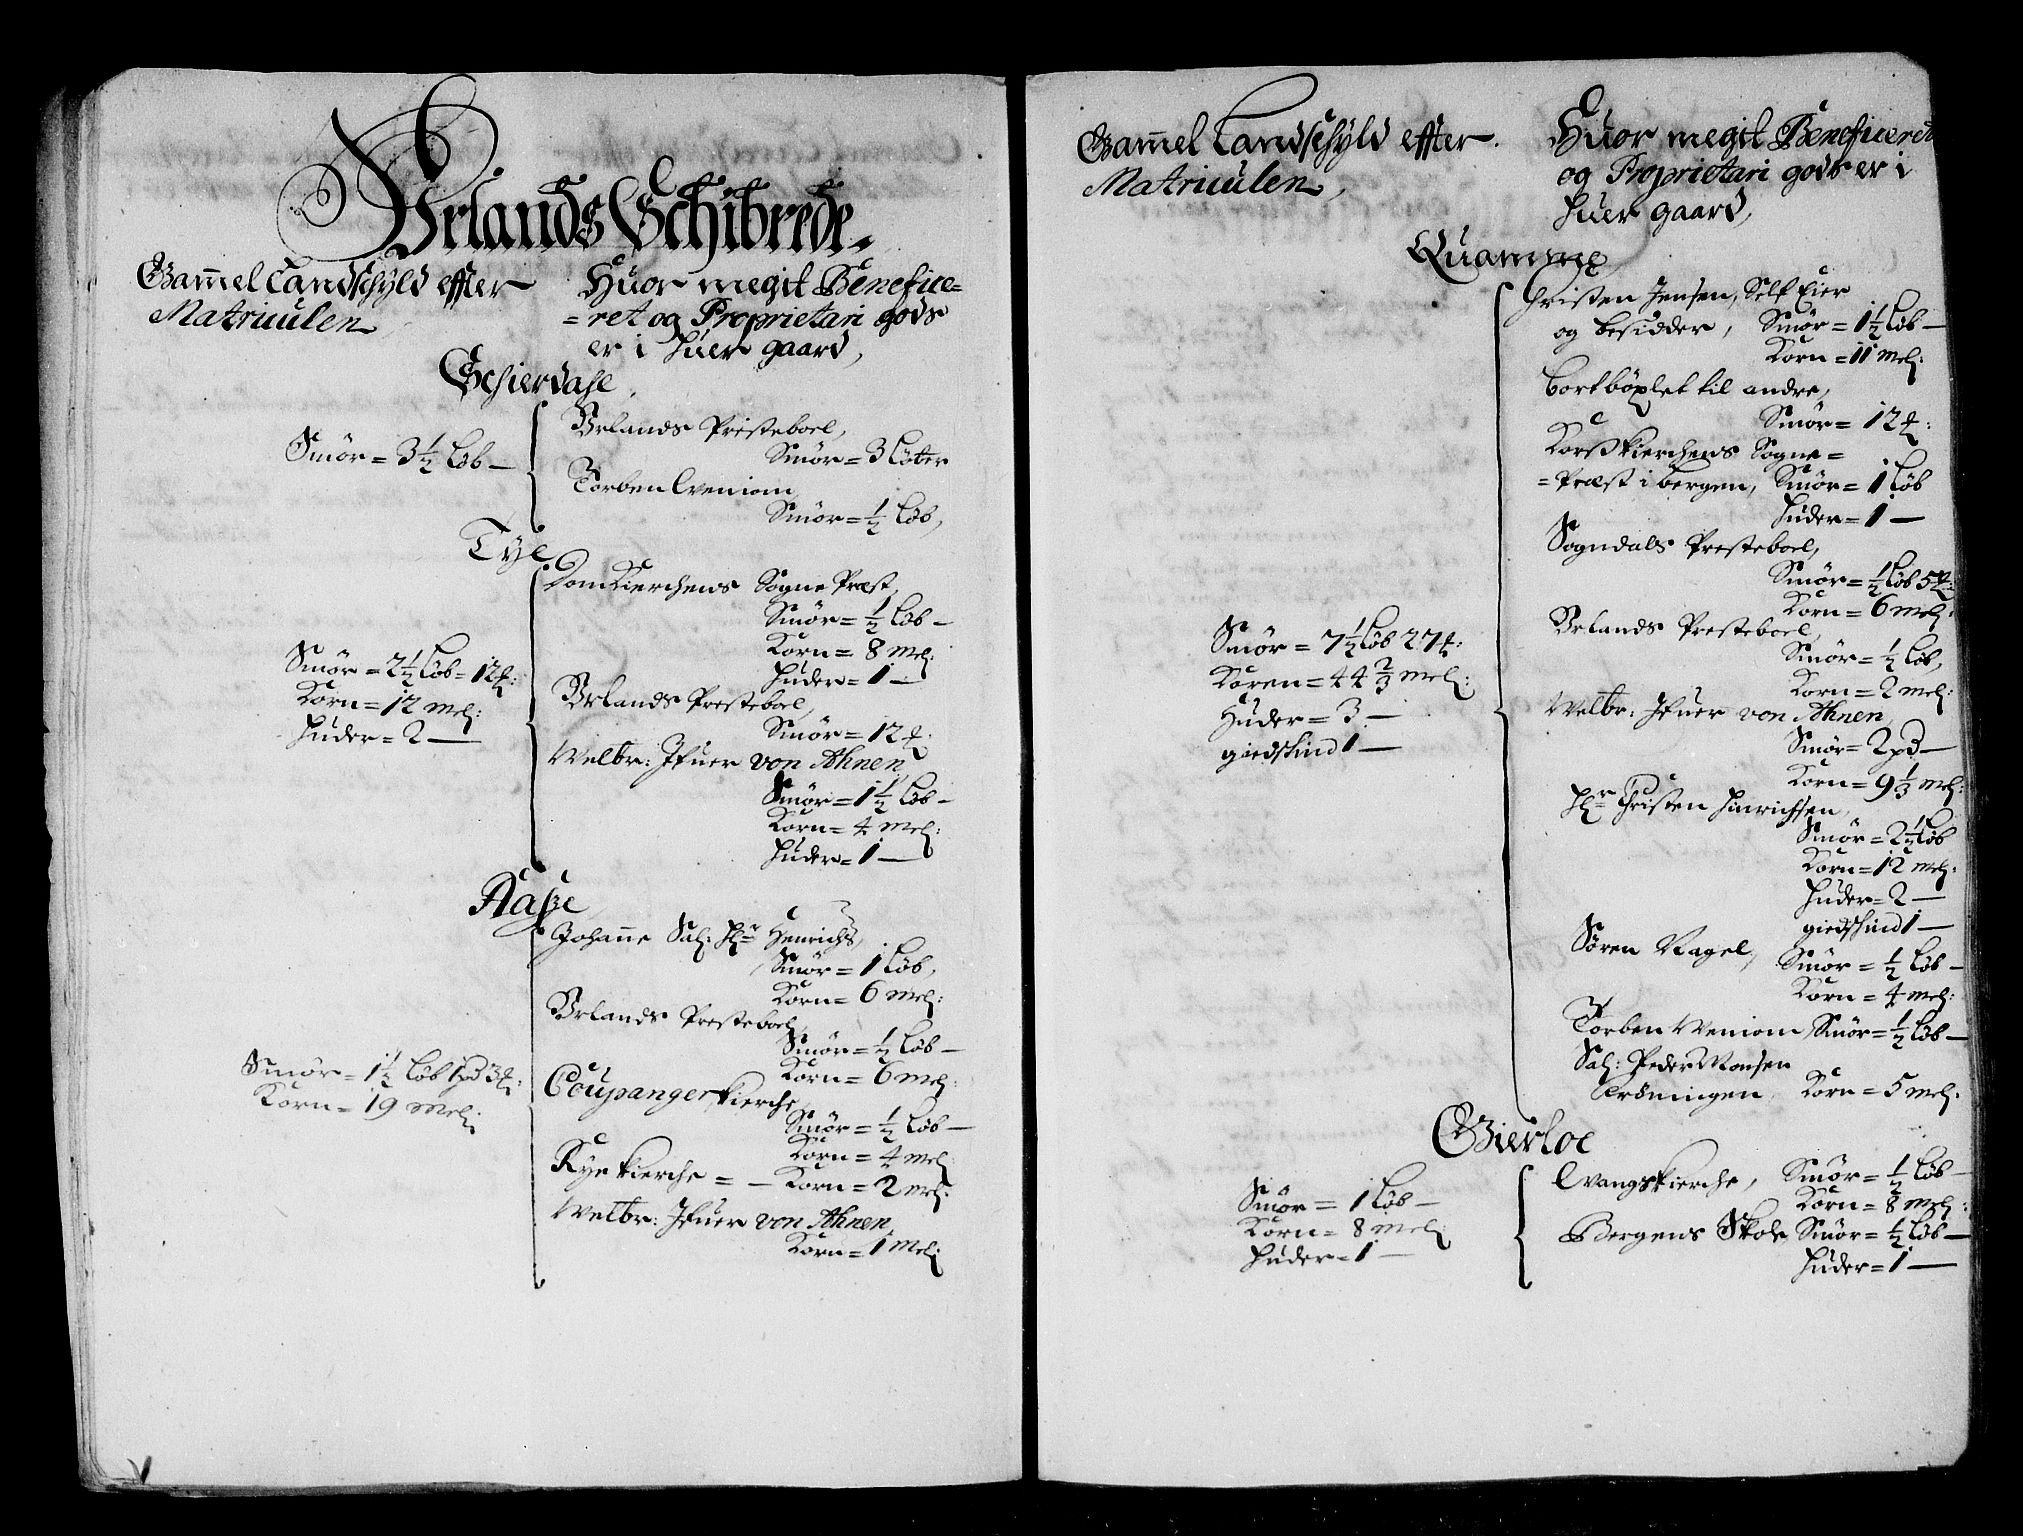 Urlands Schibrede.
Gammel Landschyld effter
Matriculen
Huor megit Benefice=
=ret og Proprietari gods
er i huer gaard,
Schierdahl
Smør = 3 1/2 Løb —
Urlands Presteboel,
Smør = 3 Løber
Torben Weniom
Smør = 1/2 Løb,
Tyl
Smør = 2 1/2 Løb = 12 ℔:
Korn = 12 mel:
Huder = 2 —
DomKierchens Sogne Præst,
Smør = 1/2 Løb —
Korn = 8 mel:
Huder = 1 —
Urlands Presteboel,
Smør = 12 ℔:
Welbr: Ifuer von Ahnen
Smør = 1 1/2 Løb —
Korn = 4 mel:
Huder = 1 —
Smør = 1 1/2 Løb 1 pd 3 ℔:
Korn = 19 mel:
Johanne Sal: Hr Henrichs,
Smør = 1 Løb,
Korn = 6 mel:
Urlands Presteboel,
Smør = 1/2 Løb —
Korn = 6 mel:
Coupanger kierche,
Smør = 1/2 Løb —
Korn = 4 mel:
Rye kierche = — Korn = 2 mel:
Welbr: Ifuer von Ahnen,
Korn = 1 mel:
Gammel Landschyld effter
Matriculen,
Huor megit Beneficeret
og Proprietari gods er i
huer gaard,
Quamme
Smør = 7 1/2 Løb 27 ℔:
Koren = 44 2/3 mel:
Huder = 3 —
giedskind 1 —
Christen Jensen, Self Eier
og besidder, Smør = 1 1/2 Løb —
Korn = 11 mel:
bortbøxlet til andre,
Smør = 12 ℔:
Korsskierchens Sogne=
=Præst i bergen, Smør = 1 Løb
Huder = 1 —
Sogndals Presteboel,
Smør = 1/2 Løb 5 ℔:
Korn = 6 mel:
Urlands Presteboel,
Smør = 1/2 Løb,
Korn = 2 mel:
Welbr: Ifuer von Ahnen,
Smør = 2 pd —
Korn = 9 1/3 mel:
Hr Christen Hinrichsen,
Smør = 2 1/2 Løb
Korn = 12 mel:
Huder = 2 —
giedskind 1 —
Søren Nagel, Smør = 1/2 Løb —
Korn = 4 mel:
Torben Weniom Smør = 1/2 Løb —
Sal: Peder Monsen
Trøningen, Korn = 5 mel:
Gierloe
Smør = 1 Løb —
Korn = 8 mel:
Huder = 1 —
Wangskierche, Smør = 1/2 Løb —
Korn = 8 mel:
Bergens Skole Smør = 1/2 Løb —
Huder = 1 —